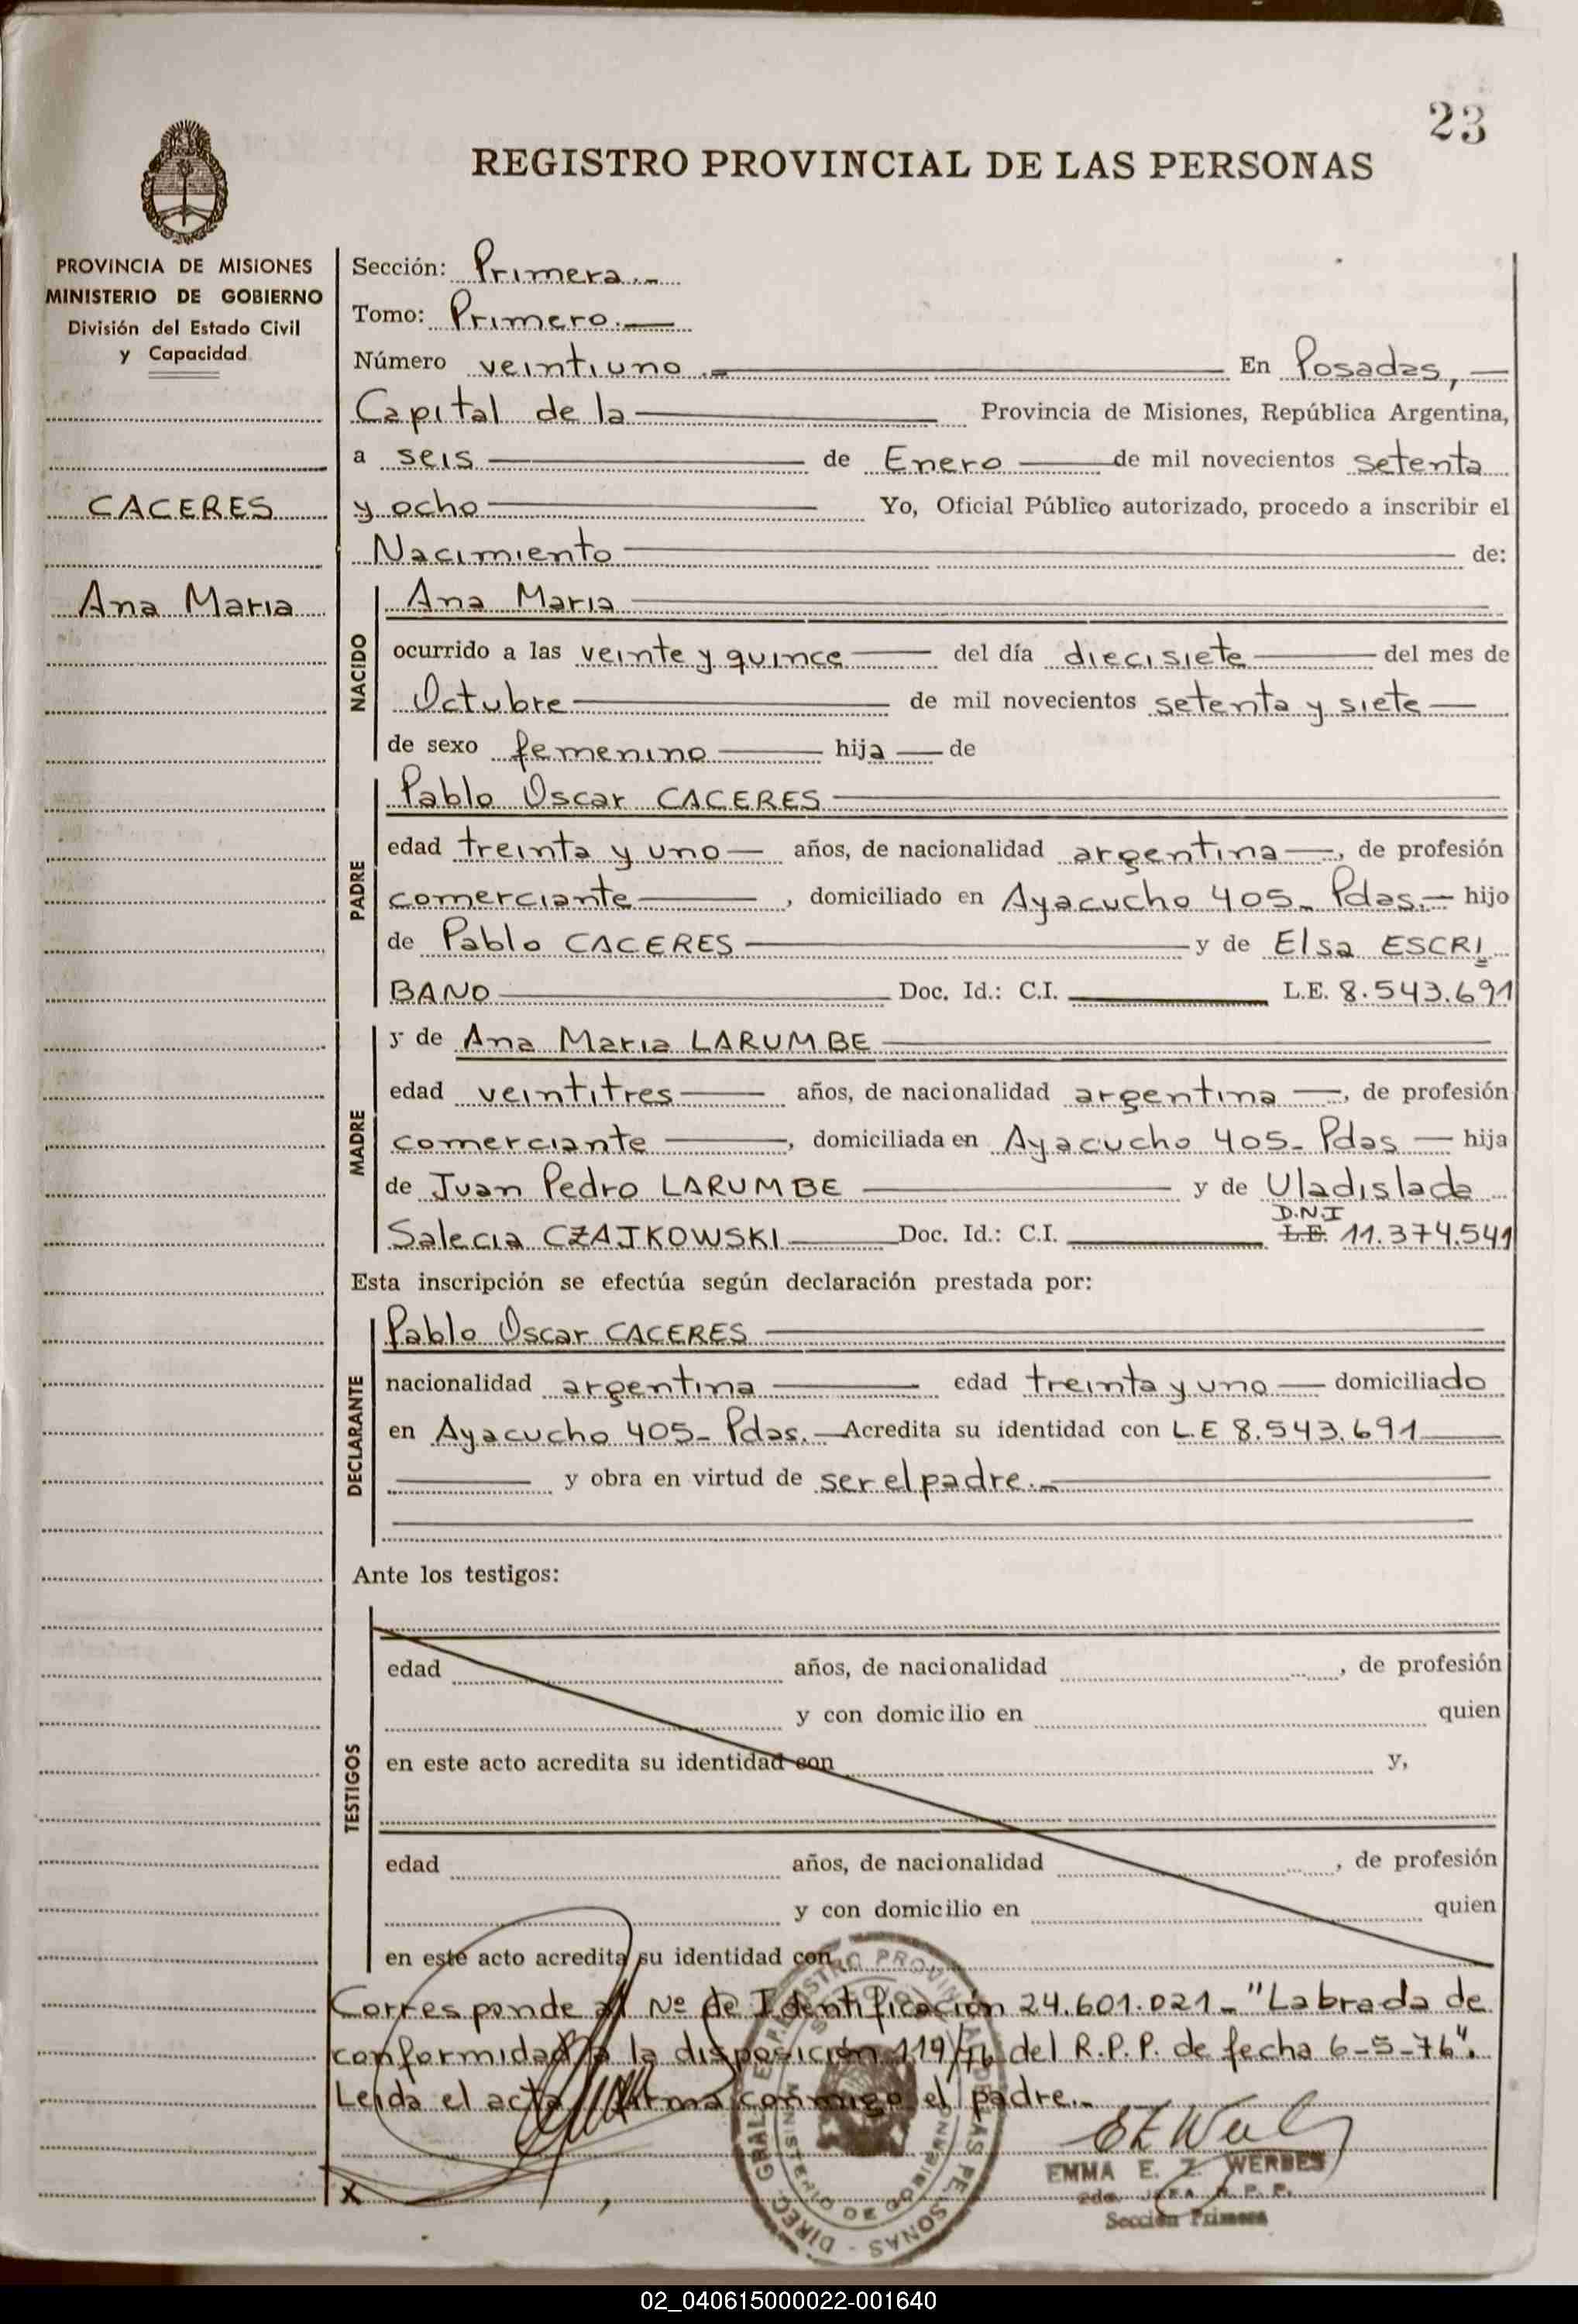 23
REGISTRO PROVINCIAL DE LAS PERSONAS
PROVINCIA DE MISIONES
MINISTERIO DE GOBIERNO
División del Estado Civil
y Capacidad
CACERES
Ana Maria
Sección: Primera.-
Tomo: Primero.—
Número veintiuno.— En Posadas,—
Capital de la— Provincia de Misiones, República Argentina,
a seis — de Enero — de mil novecientos setenta
y ocho — Yo, Oficial Público autorizado, procedo a inscribir el
Nacimiento — de:
NACIDO
Ana Maria —
ocurrido a las veinte y quince — del día diecisiete — del mes de
Octubre — de mil novecientos setenta y siete —
de sexo femenino — hija — de
PADRE
Pablo Oscar CACERES —
edad treinta y uno — años, de nacionalidad argentina —, de profesión
comerciante —, domiciliado en Ayacucho 405- Pdas.— hijo
de Pablo CACERES — y de Elsa ESCRI
BANO — Doc. Id.: C.I. — L.E. 8.543.691
MADRE
y de Ana Maria LARUMBE —
edad veintitres — años, de nacionalidad argentina —, de profesión
comerciante —, domiciliada en Ayacucho 405- Pdas — hija
de Juan Pedro LARUMBE — y de Uladislada
D.N.I
Salecia CZAJKOWSKI — Doc. Id.: C.I. — L.E. 11.374.541
Esta inscripción se efectúa según declaración prestada por:
DECLARANTE
Pablo Oscar CACERES —
nacionalidad argentina — edad treinta y uno — domiciliado
en Ayacucho 405- Pdas.— Acredita su identidad con L.E 8.543.691
— y obra en virtud de ser el padre.-—
Ante los testigos:
TESTIGOS
edad años, de nacionalidad , de profesión
y con domicilio en quien
en este acto acredita su identidad con y,
edad años, de nacionalidad , de profesión
y con domicilio en quien
en este acto acredita su identidad con
Corresponde al Nº de Identificación 24.601.021-"Labrada de
conformidad a la disposición 119/76 del R.P.P. de fecha 6-5-76".
Leida el acta, firma conmigo el padre.-
EMMA E. Z. WERBES
2da. JEFA R. P. P.
Sección Primera
X
02_040615000022-001640